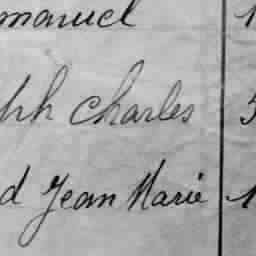 mmanuel 1
ph Charles 5
d Jean Marie 1